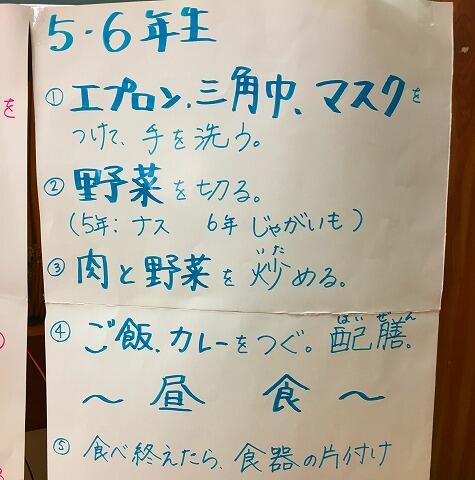 5・6年生
① エプロン、三角巾、マスクを
つけて、手を洗う。
② 野菜を切る。
(5年:ナス 6年 じゃがいも)
③ 肉と野菜を炒める。
いた
④ ご飯、カレーをつぐ。配膳。
はいぜん
～昼 食～
⑤ 食べ終えたら、食器の片付け
を